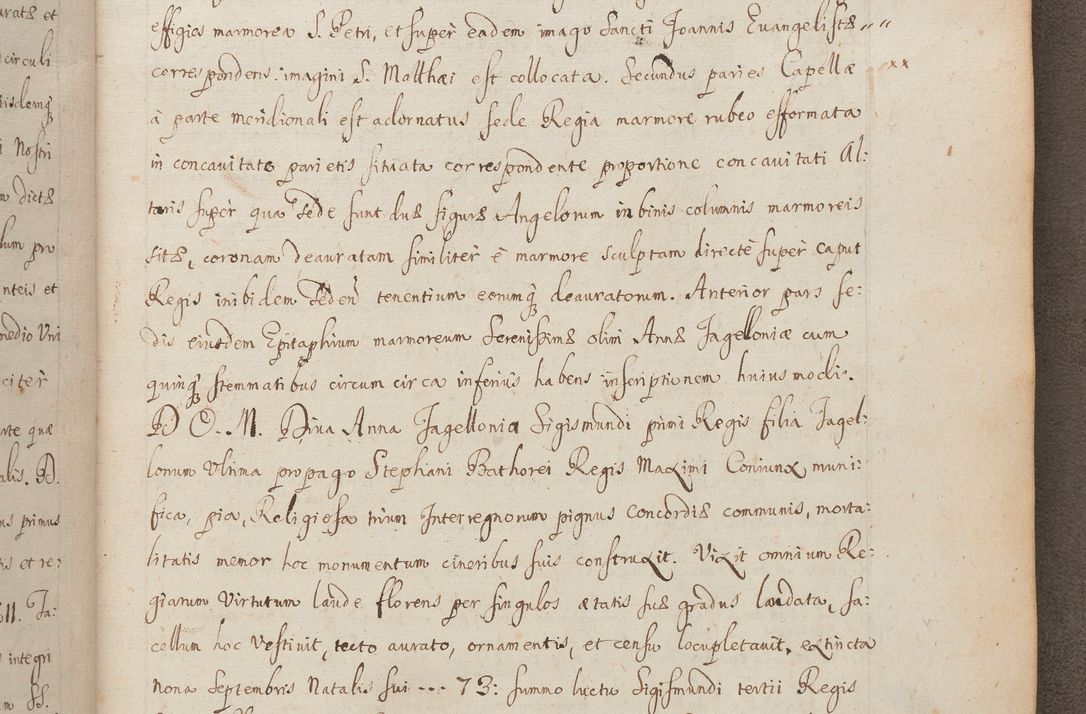 uratæ et
circuli
iisdemq̃
i Nostri
m dictæ
lum pro
nteis et
medio Uni
citèr
arte quæ
alis. D.
us primus
is et re:
Ja:
integri
SS.
effigies marmorea S. Petri, et supèr eadem imago Sancti Joannis Evangelistæ
correspondens imagini S. Matthæi est collocata. Secundus paries Capellæ
à parte meridionali est adornatus sede Regia marmore rubeo efformata
in concavitate parietis situata correspondente proportione concavitati Al:
taris supèr qua sede sunt duæ figuræ Angelorum in binis columnis marmoreis
sitæ, coronam deauratam similitèr è marmore sculptam directè supèr caput
Regis inibidem seden̄ tenentium eorumq̃ deauratorum. Anterior pars se:
dis eiusdem Epitaphium marmoreum Serenissimæ olim Annæ Jagelloniæ cum
quinq̃ stemmatibus circum circa inferius habens inscriptionem huiusmodi.
D. O. M. Diva Anna Jagellonia Sigismundi primi Regis filia Jagel:
lonum Ultima propago Stephani Bathorei Regis Maximi Coniunx muni:
fica, pia, Religiosa trium Interregnorum pignus concordiæ communis, morta:
litatis memor hoc monumentum cineribus suis construxit. Vixit omnium Re:
giarum Virtutum laude florens per singulos ætatis suæ gradus laudata, sa:
cellum hoc vestivit, tecto aurato, ornamentis, et censu locupletavit, extincta
nona Septembris Natalis sui --- 73: summo luctu Sigismundi tertii Regis